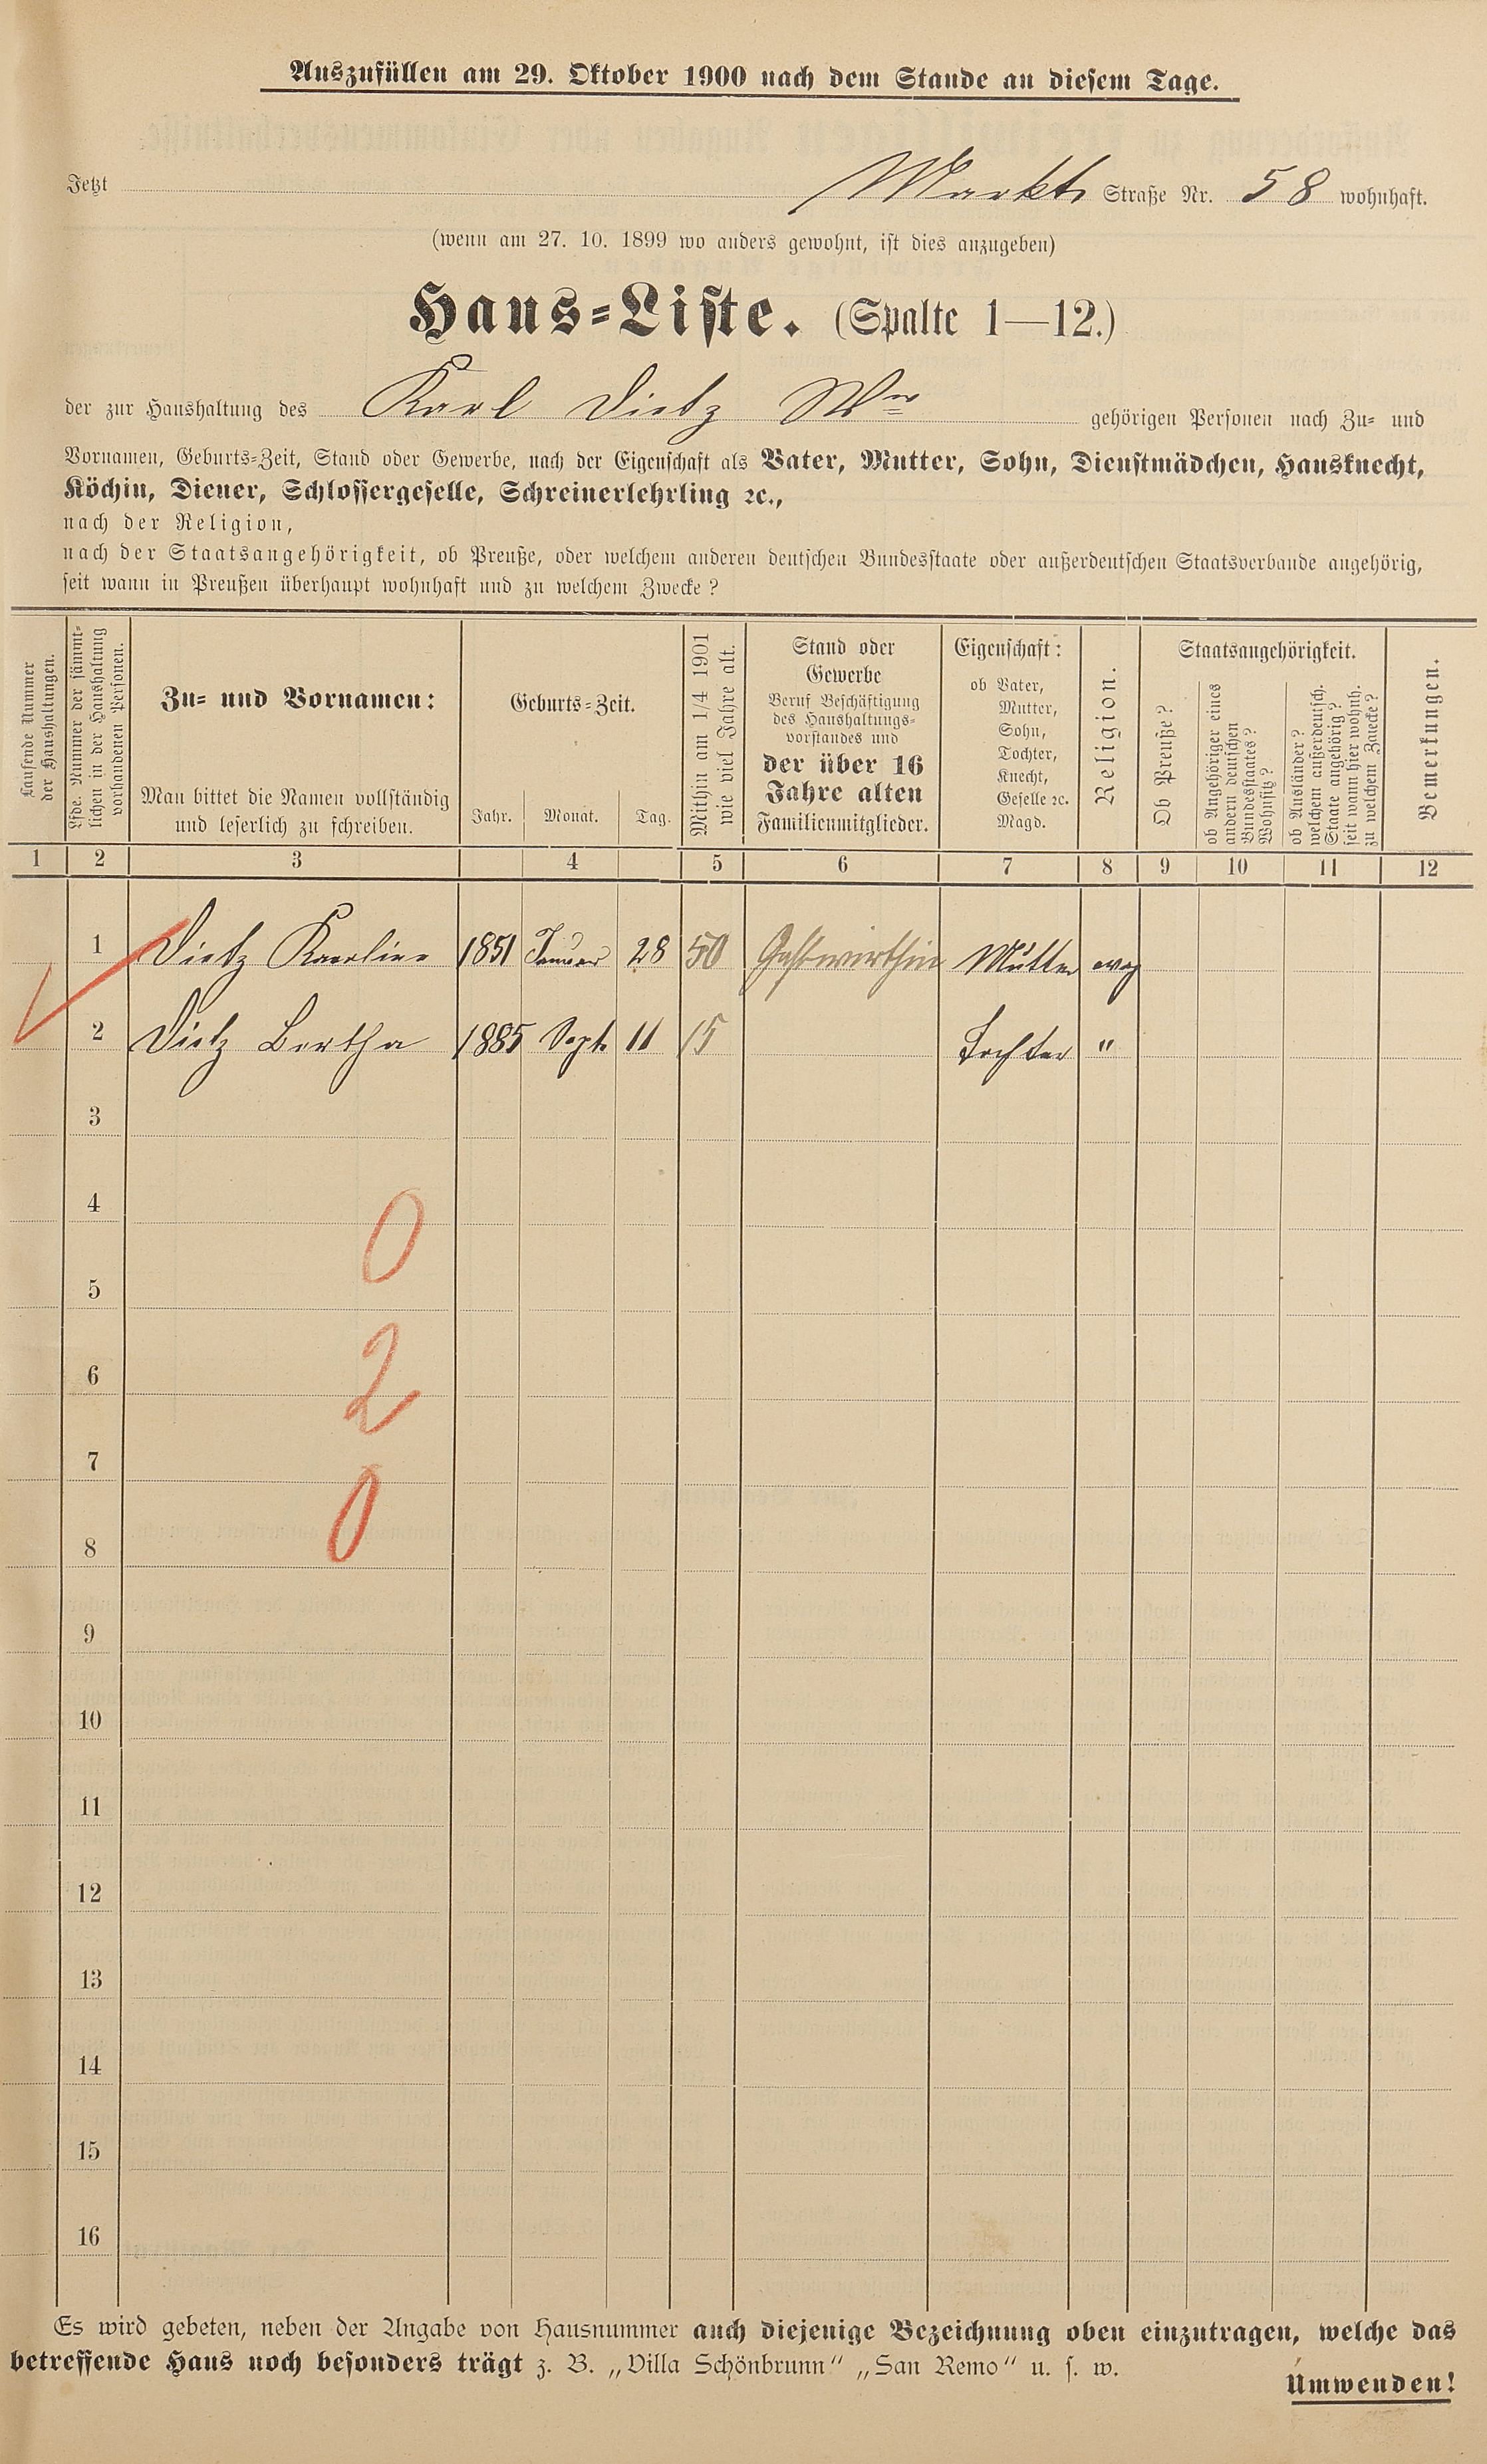 Auszufüllen am 29. Oktober 1900 nach dem Stande an diesem Tage.
Jetzt Markt Straße Nr. 58 wohnhaft.
(wenn am 27. 10. 1899 wo anders gewohnt, ist dies anzugeben)
Haus-Liste. (Spalte 1—12.)
der zur Haushaltung des Karl Dietz Wwe gehörigen Personen nach Zu- und
Vornamen, Geburts-Zeit, Stand oder Gewerbe, nach der Eigenschaft als Vater, Mutter, Sohn, Dienstmädchen, Hausknecht,
Köchin, Diener, Schlossergeselle, Schreinerlehrling ꝛc.,
nach der Religion,
nach der Staatsangehörigkeit, ob Preuße, oder welchem anderen deutschen Bundesstaate oder außerdeutschen Staatsverbande angehörig,
seit wann in Preußen überhaupt wohnhaft und zu welchem Zwecke?
Laufende Nummer
der Haushaltungen.
Lfde. Nummer der sämmt-
lichen in der Haushaltung
vorhandenen Personen.
Zu- und Vornamen:
Man bittet die Namen vollständig
und leserlich zu schreiben.
Geburts-Zeit.
Jahr. Monat. Tag.
Mithin am 1/4 1901
wie viel Jahre alt.
Stand oder
Gewerbe
Beruf Beschäftigung
des Haushaltungs-
vorstandes und
der über 16
Jahre alten
Familienmitglieder.
Eigenschaft:
ob Vater,
Mutter,
Sohn,
Tochter,
Knecht,
Geselle ꝛc.
Magd.
Religion.
Staatsangehörigkeit.
Ob Preuße?
ob Angehöriger eines
andern deutschen
Bundesstaates?
Wohnsitz?
ob Ausländer?
welchem außerdeutsch.
Staate angehörig?
seit wann hier wohnh.
zu welchem Zwecke?
Bemerkungen.
1 2 3 4 5 6 7 8 9 10 11 12
1 Dietz Karoline 1851 Januar 28 50 Gastwirthin Mutter evag
2 Dietz Bertha 1885 Sept. 11 15 Tochter "
3
4
0
5
6
2
7
0
8
9
10
11
12
13
14
15
16
Es wird gebeten, neben der Angabe von Hausnummer auch diejenige Bezeichnung oben einzutragen, welche das
betreffende Haus noch besonders trägt z. B. „Villa Schönbrunn" „San Remo" u. s. w.
Umwenden!